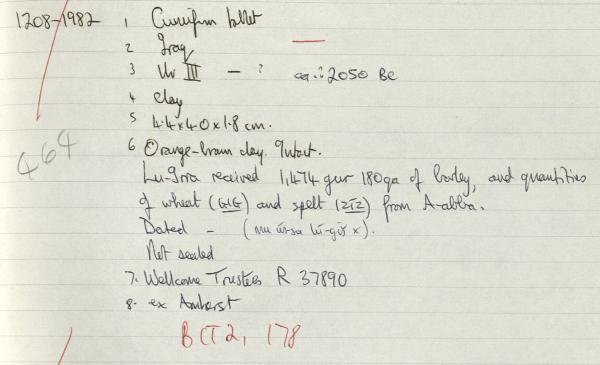 1208-1982 1 Cuneiform tablet
2 Iraq
3 Ur III - ? ca. 2050 BC
4 Clay
5 4.4 x 4.0 x 1.8 cm.
464
6 Orange-brown clay. Intact.
Lu-Inna received 1,474 gur 180 qa of barley, and quantities
of wheat (GIG) and spelt (ZIZ) from A-abba.
Dated - (mu ús-sa
Not sealed
7. Wellcome Trustees R 37890
8. ex Amherst
BCT2, 178